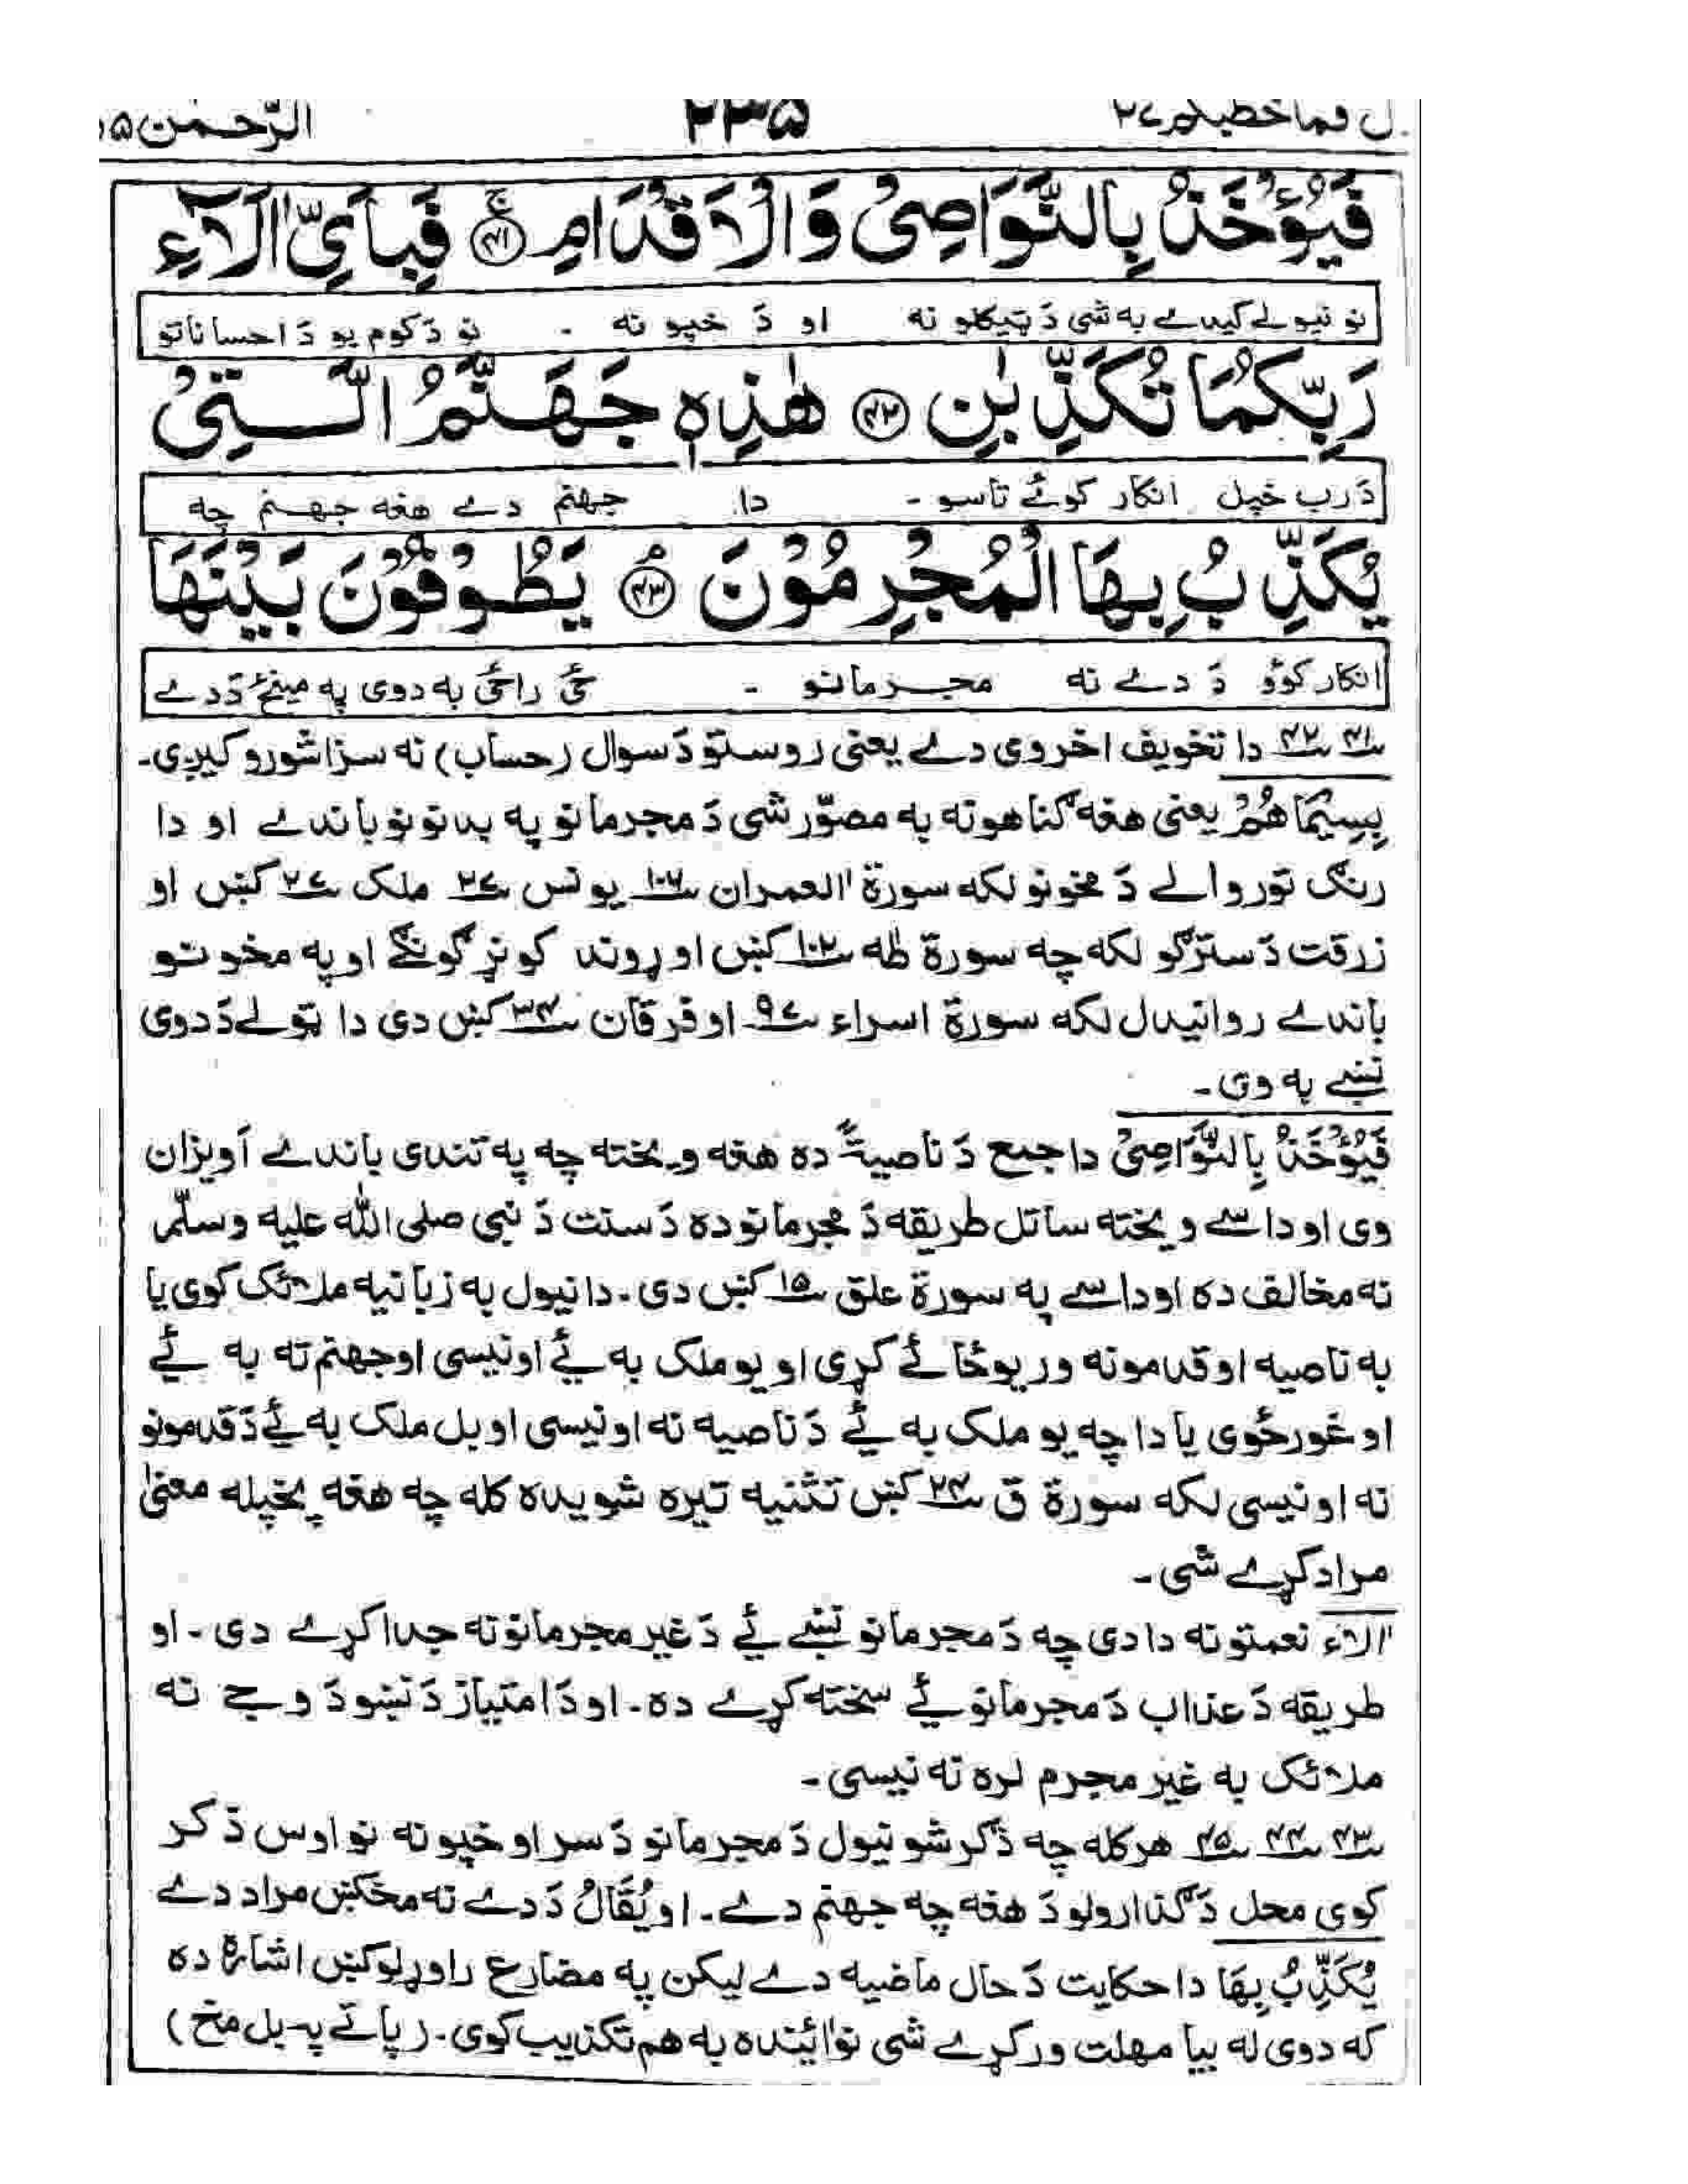 قال فما خطبكم ٢٧ ٢٣٥ الرّحمٰن ٥٥
فَيُؤْخَذُ بِالنَّوَاصِىْ وَالْاَقْدَامِ ﴿٤١﴾ فَبِاَىِّ اٰلَآءِ
نو نيولے کيدے به شى دَ تيکلو نه او دَ خپو نه ۔ نو دَ کوم يو دَ احساناتو
رَبِّكُمَا تُكَذِّبٰنِ ﴿٤٢﴾ هٰذِهٖ جَهَنَّمُ الَّتِىْ
دَ رب خپل انکار کوئے تاسو ۔ دا جهنم دے هغه جهنم چه
يُكَذِّبُ بِهَا الْمُجْرِمُوْنَ ﴿٤٣﴾ يَطُوْفُوْنَ بَيْنَهَا
انکار کوؤ دَ دے نه مجرمانو ۔ ځى راځى به دوى په مينځ دَ دے
٤١ ٤٢ دا تخويف اخروى دے يعنى روستو دَ سوال (حساب) نه سزا شورو کيږى۔
بِسِيْمَاهُمْ يعنى هغه گناهونه به مصوّر شى دَ مجرمانو په بدنونو باندے او دا
رنگ تور والے دَ مخونو لکه سورة اٰل عمران ١٠٦ يونس ٢٧ ملک ٢٧ کښ او
زرقت دَ سترگو لکه چه سورة طٰه ١٠٢ کښ او ړوند کونړ گونگے او په مخونو
باندے روانيدل لکه سورة اسراء ٩٧ او فرقان ٣٤ کښ دى دا ټولے دَ دوى
نښے به وى۔
فَيُؤْخَذُ بِالنَّوَاصِىْ دا جمع دَ ناصيةٌ ده هغه ويخته چه په تندى باندے آويزان
وى او داسے ويخته ساتل طريقه دَ مجرمانو ده دَ سنت دَ نبى صلى الله عليه وسلّم
نه مخالف ده او داسے په سورة علق ١٥ کښ دى۔ دا نيول به زبانيه ملائک کوى يا
به ناصيه او قدمونه ور يوځائے کړى او يو ملک به ئے اونيسى او جهنم ته به ئے
او غورځوى يا دا چه يو ملک به ئے دَ ناصيه نه اونيسى او بل ملک به ئے دَ قدمونو
نه اونيسى لکه سورة ق ٢٤ کښ تثنيه تيره شويده کله چه هغه پخپله معنىٰ
مراد کړے شى۔
اٰلاء نعمتونه دا دى چه دَ مجرمانو نښے ئے دَ غير مجرمانو نه جدا کړے دى۔ او
طريقه دَ عذاب دَ مجرمانو ئے سخته کړے ده۔ او دَ امتياز دَ نښو دَ وجے نه
ملائک به غير مجرم لره نه نيسى۔
٤٣ ٤٤ ٤٥ هرکله چه ذکر شو نيول دَ مجرمانو دَ سر او خپو نه نو اوس ذکر
کوى محل دَ گذارولو دَ هغه چه جهنم دے۔ او يُقَالُ دَ دے نه مخکښ مراد دے
يُكَذِّبُ بِهَا دا حکايت دَ حال ماضيه دے ليکن په مضارع راوړلو کښ اشاره ده
که دوى له بيا مهلت ورکړے شى نو ائينده به هم تکذيب کوى۔ (پاتے په بل مخ)